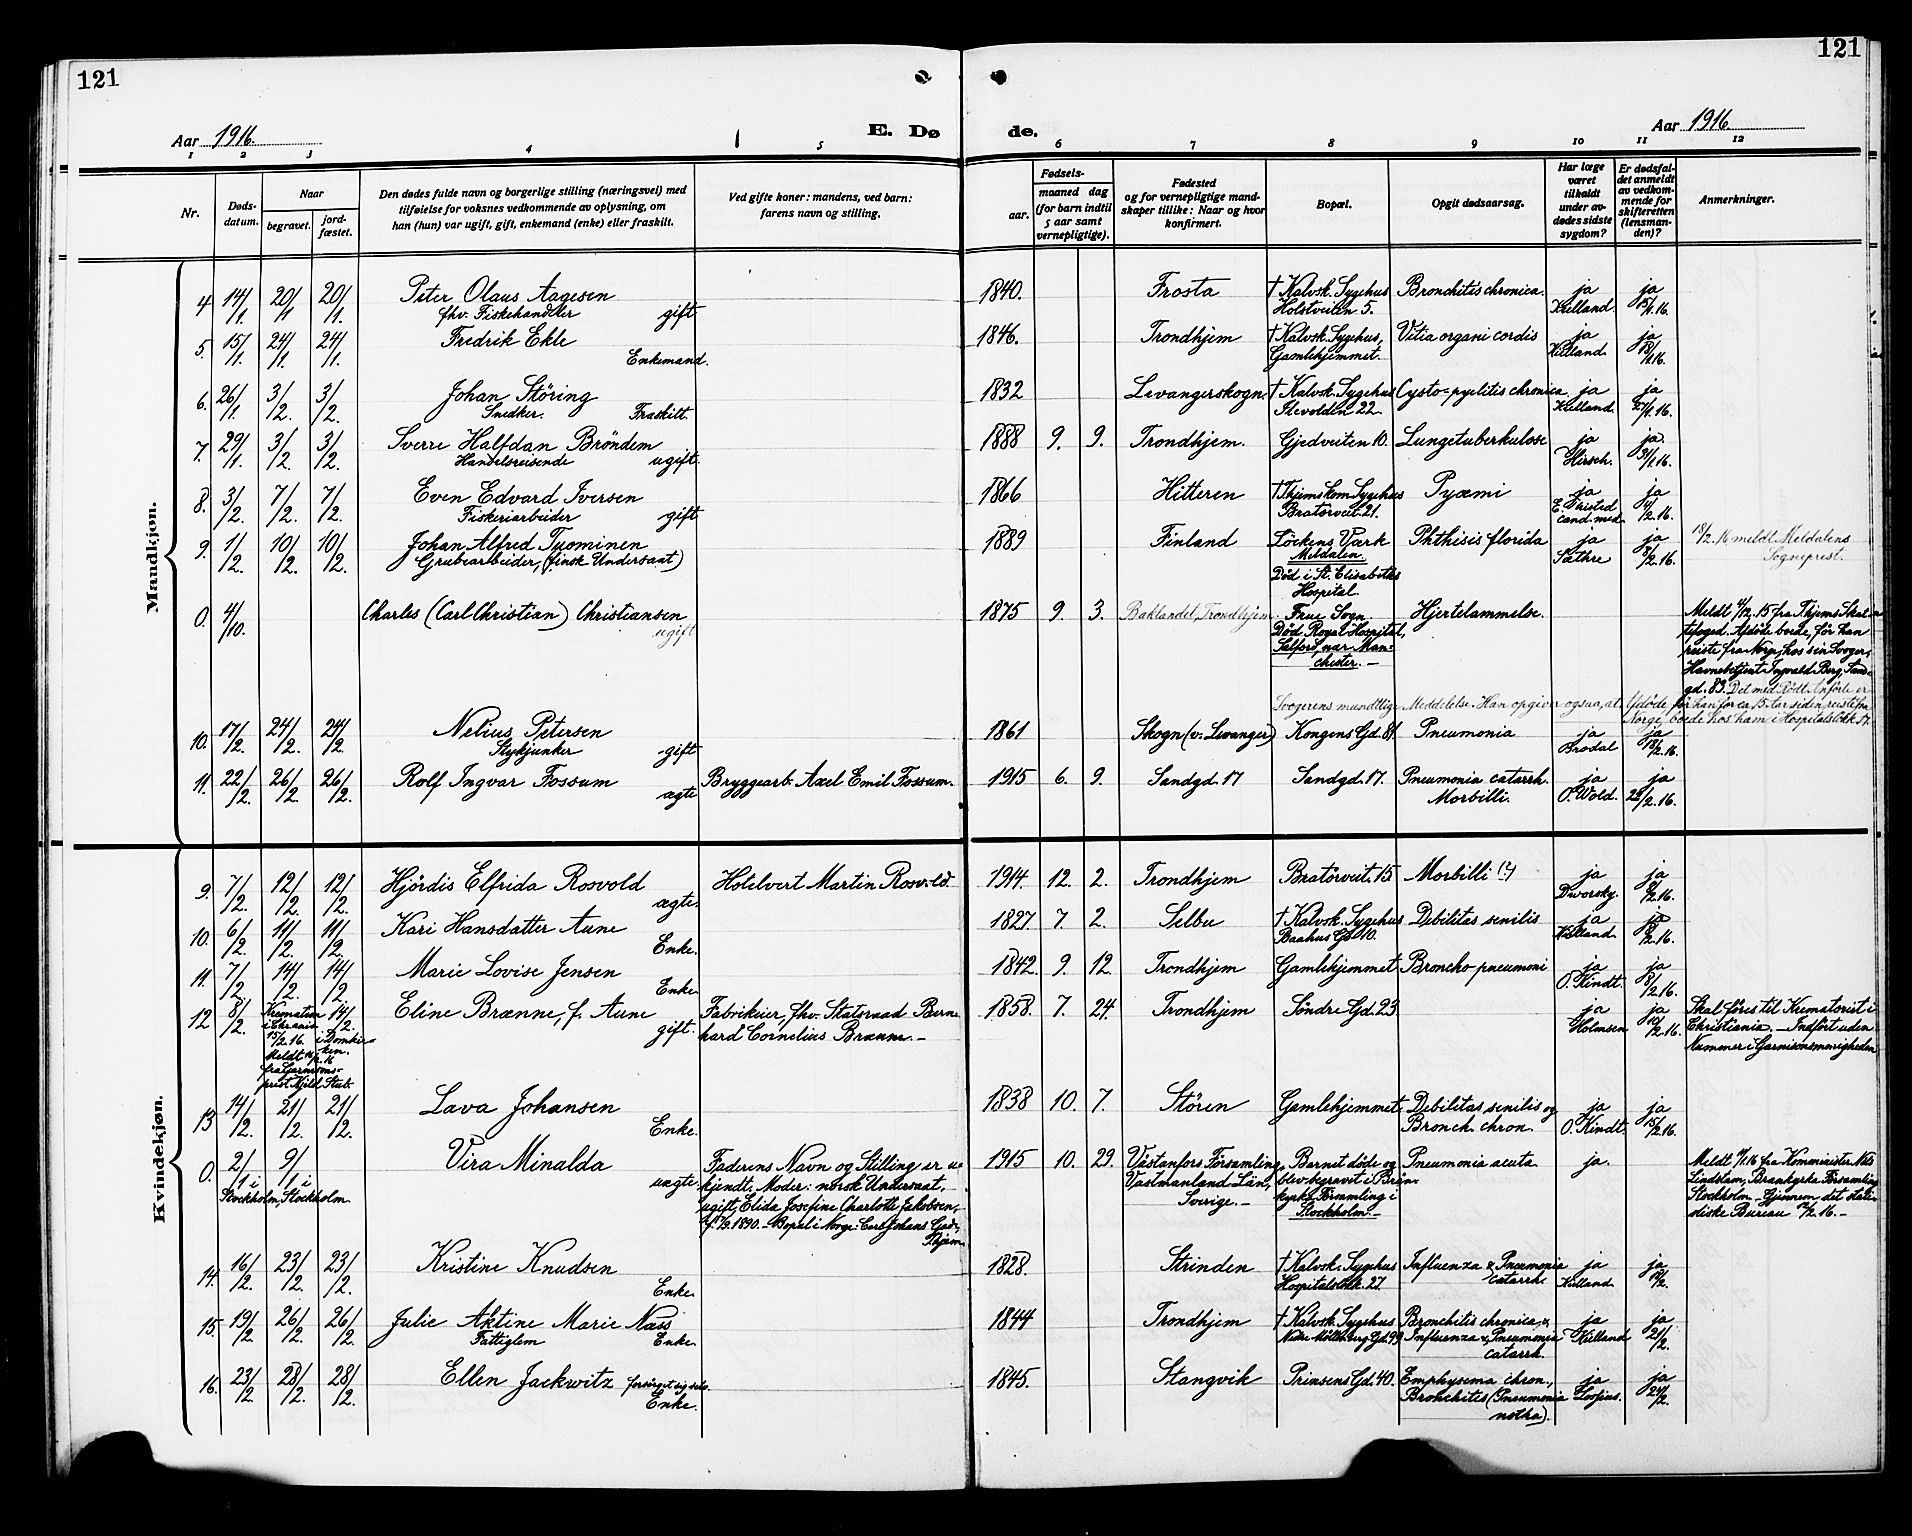 121
121
Aar 1916.
E. Dø
de.
Aar 1916.
1 2 3 4 5 6 7 8 9 10 11 12
Nr.
Døds-
datum.
Naar
begravet.
jord-
fæstet.
Den dødes fulde navn og borgerlige stilling (næringsvei) med
tilføielse for voksnes vedkommende av oplysning, om
han (hun) var ugift, gift, enkemand (enke) eller fraskilt.
Ved gifte koner: mandens, ved barn:
farens navn og stilling.
Fødsels-
aar.
maaned dag
(for barn indtil
5 aar samt
vernepligtige).
Fødested
og for vernepligtige mand-
skaper tillike: Naar og hvor
konfirmert.
Bopæl.
Opgit dødsaarsag.
Har læge
været
tilkaldt
under av-
dødes sidste
sygdom?
Er dødsfal-
det anmeldt
av vedkom-
mende for
skifteretten
(lensman-
den)?
Anmerkninger.
Mandkjøn.
4 14/1. 20/1 20/1. Peter Olaus Aagesen 1840. Frosta † Kalvsk. Sygehus Bronchitis chronica. ja ja
fhv. Fiskehandler gift Holstveiten 5. Kielland. 15/1.16.
5. 15/1. 24/1. 24/1. Fredrik Ekle 1846. Trondhjem † Kalvsk. Sygehus, Vitia organi cordis ja ja
Enkemand. Gamlehjemmet. Kielland. 18/1.16.
6. 26/1. 3/2. 3/2. Johan Störing 1832 Levangerskogn † Kalvsk. Sygehus Cysto-pyelitis chronica ja ja
Snedker. Fraskilt. Ilevolden 22. Kielland. 27/1.16.
7. 29/1. 3/2. 3/2. Sverre Halfdan Bröndem 1888 9. 9. Trondhjem. Gjedveiten 10. Lungetuberkulose ja ja.
Handelsreisende ugift. Hirsch. 31/1.16.
8. 3/2. 7/2. 7/2. Even Edvard Iversen 1866 Hitteren † Thjems Kom. Sygehus Pyæmi ja ja
Fiskeriarbeider gift Bratörveit. 21. cand. med. 4/2.16.
9. 1/2. 10/2. 10/2. Johan Alfred Tuominen 1889 Finland Löckens Værk Phthisis florida ja ja 18/2.16 meldt Meldalens
Grubearbeider, (finsk Undersaat) Meldalen. Sæthre 8/2.16. Sogneprest.
Död i St. Elisabeths
Hospital.
0. 4/10. Charles (Carl Christian) Christiansen 1875 9. 3. Baklandet, Trondhjem. Frue Sogn Hjertelammelse. Meldt 4/12.15 fra Thjems Skat-
ugift Död Royal Hospital, tefoged. Afdöde boede, för han
Salford, nær Man- reiste fra Norge, hos sin Svoger,
chester. – Havnebetjent Ingvald Berg, Sand-
gd. 83. Det med Rött Anförte er
Svogerens mundtlige Meddelelse. Han opgiver ogsaa, at Afdöde, för han for ca. 15 Aar siden reiste fra
Norge, boede hos ham i Hospitalslökk. 17.
10. 17/2. 24/2. 24/2. Nelius Petersen 1861 Skogn (v. Levanger) Kongens Gd. 81. Pneumonia ja ja
Stykjunker gift Brodal 18/2.16.
11. 22/2. 26/2. 26/2. Rolf Ingvar Fossum Bryggearb. Axel Emil Fossum. 1915 6. 9. Sandgd. 17 Sandgd. 17. Pneumonia catarrh. ja ja
ægte Morbilli. O. Wold. 25/2.16.
Kvindekjøn.
9. 7/2. 12/2. 12/2. Hjördis Elfrida Rosvold Hotelvert Martin Rosvold. 1914. 12. 2. Trondhjem Bratörveit. 15. Morbilli (?) ja ja
ægte. Dworsky. 8/2.16.
10. 6/2. 11/2. 11/2. Kari Hansdatter Aune 1827. 7. 2. Selbu † Kalvsk. Sygehus Debilitas senilis ja ja
Enke. Baahus Gd. 10. Kielland. 8/2.16.
11. 7/2. 14/2. 14/2 Marie Lovise Jensen 1842. 9. 12. Trondhjem Gamlehjemmet Broncho-pneumoni ja ja
Enke. O. Kindt. 8/2.16.
12 8/2. Kremation 14/2. Eline Brænne, f. Aune Fabrikeier, fhv. Statsraad Bern- 1858. 7. 24. Trondhjem Söndre Gd. 23 ja ja Skal föres til Krematoriet i
i Chrania i Domkir- gift. hard Cornelius Brænne. – Holmsen 10/2.16. Christiania. – Indfört uden
15/2.16. ken. Nummer i Garnisonsmenigheden
Meldt
fra Garnisons-
prest Kjeld Stub.
13 14/2. 21/2. 21/2. Lava Johansen 1838 10. 7. Stören Gamlehjemmet. Debilitas senilis og ja ja
Enke. Bronch. chron. O. Kindt. 15/2.16.
0. 2/1 i 9/1 i Vira Minalda Faderens Navn og Stilling er u- 1915 10. 29. Västanfors Församling, Barnet döde og Pneumonia acuta ja. Meldt fra Komminister Nils
Stockholm, Stockholm uægte. kjendt. Moder: norsk Undersaat, Västmanland Län, blev begravet i Brän- Lindstam, Brankyrka Församling
ugift, Elida Josefine Charlotte Jakobsen, Sverige. – kyrka Församling i Stockholm – Gjennem det statis-
1890. – Bopæl i Norge: Carl Johans Gade, Stockholm. – tiske Bureau
Thjem.
14. 16/2. 23/2. 23/2. Kristine Knudsen 1828. Strinden † Kalvsk. Sygehus Influenza & Pneumonia ja ja
Enke. Hospitalslökk. 27. catarrh. Kielland. 18/2.
15. 19/2. 26/2. 26/2. Julie Aktine Marie Næss 1844 Trondhjem † Kalvsk. Sygehus Bronchitis chronica, ja ja
Fattiglem Enke. Nedre Möllenberg Gd. 99. Influenza & Pneumonia Kielland 21/2.
catarrh.
16. 23/2. 28/2. 28/2. Ellen Jackwitz forsörget sig selv. 1845. Stangvik Prinsens Gd. 40. Emphysema chron., ja ja
Enke. Bronchitis (Pneumonia 24/2.
notha).